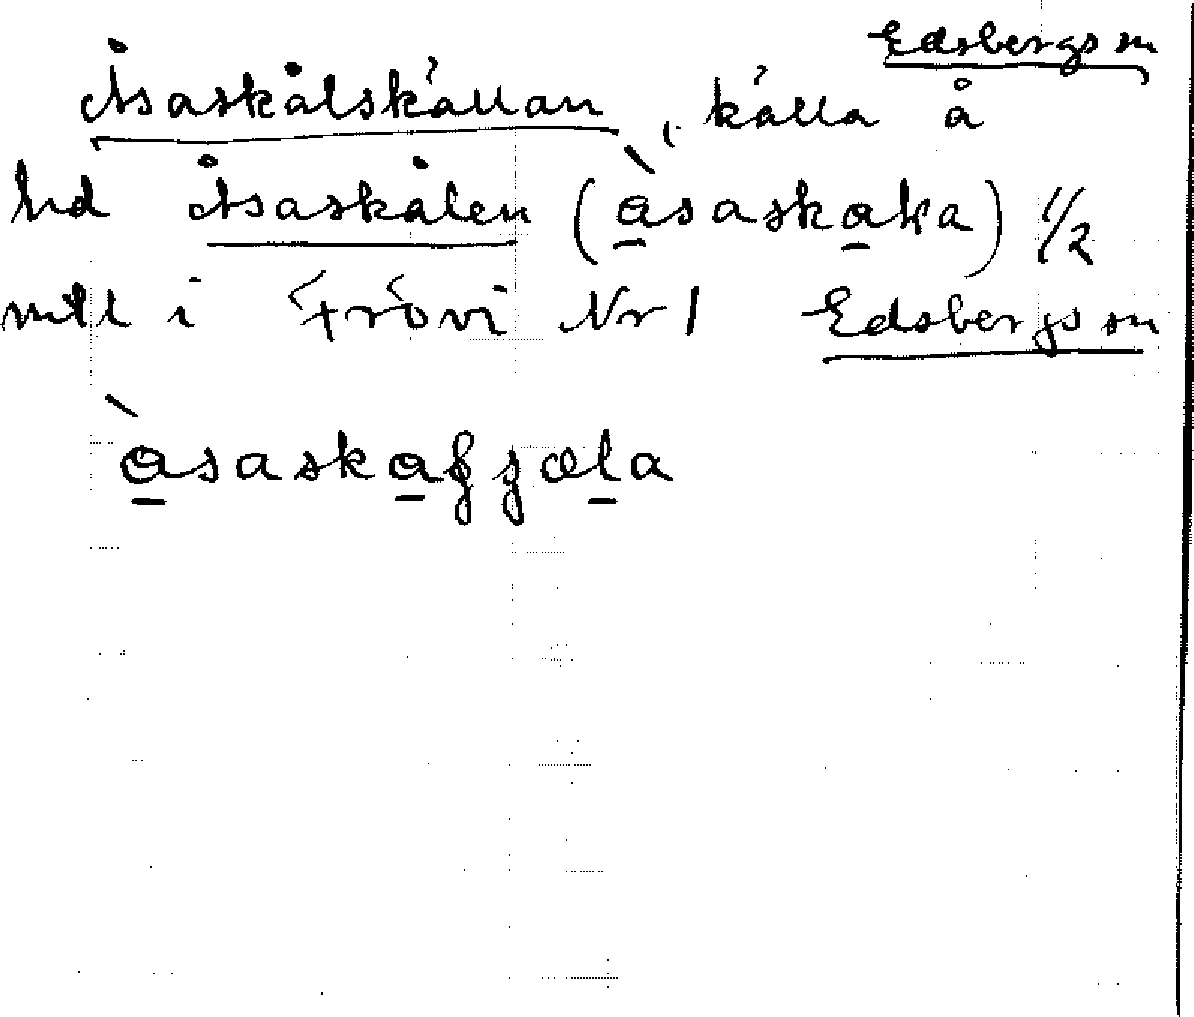 Edsbergs sn
Åsaskålskällan, källa å
hd Åsaskålen (àsaskaka) 1/2
mtl i Frövi Nr 1 Edsbergs sn
àsaskafsæla